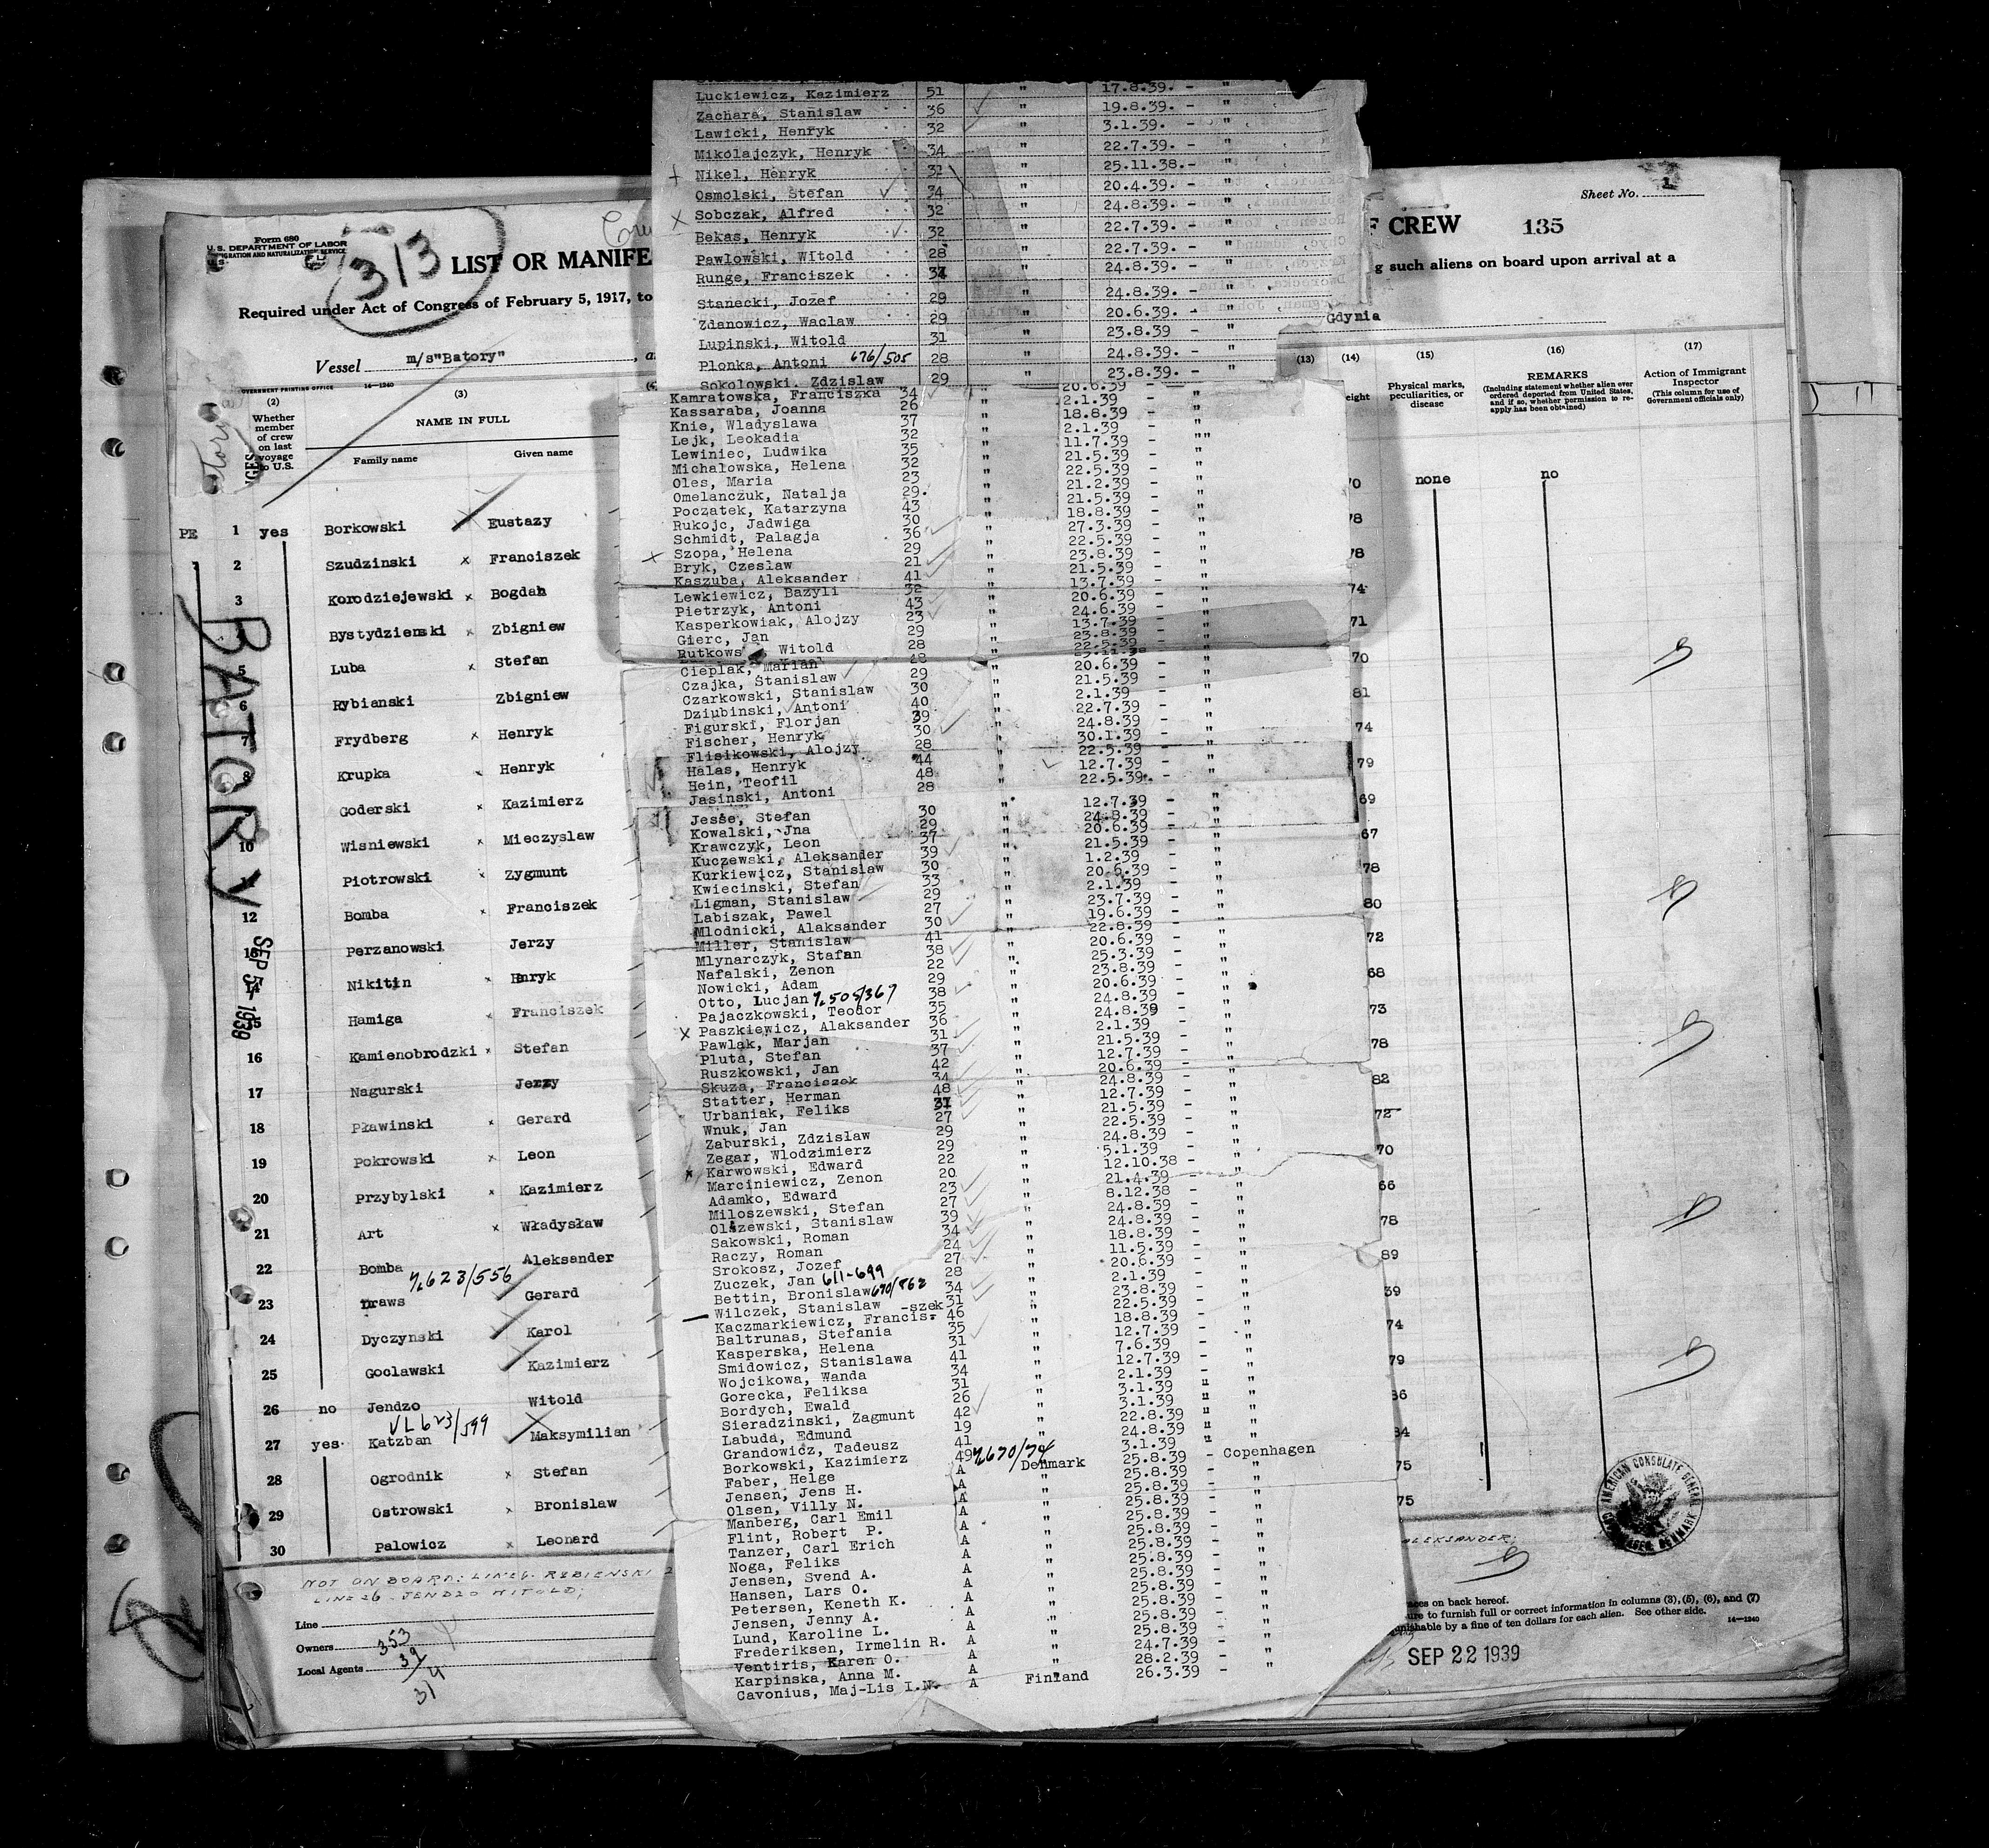 Form 680
U.S. DEPARTMENT OF LABOR
IMMIGRATION AND NATURALIZATION SERVICE
313
LIST OR MANIFE
F CREW
135
Sheet No. 1
g such aliens on board upon arrival at a
Required under Act of Congress of February 5, 1917, to
Gdynia
Vessel m/s"Batory"
GOVERNMENT PRINTING OFFICE 14—1240
(2) (3) (13) (14) (15) (16) (17)
Whether member of crew on last voyage to U.S.
NAME IN FULL
Family name Given name
Physical marks, peculiarities, or disease
REMARKS
(Including statement whether alien ever ordered deported from United States, and if so, whether permission to re-apply has been obtained)
Action of Immigrant Inspector
(This column for use of Government officials only)
none no
BATORY
SEP 5 - 1939
PE 1 yes Borkowski Eustazy 70
2 Szudzinski x Franciszek 78
3 Korodziejewski x Bogdan 78
Bystydzienski x Zbigniew 74
5 Luba x Stefan 71
6 Rybianski Zbigniew 70
7 Frydberg x Henryk 81
8 Krupka x Henryk 74
Goderski x Kazimierz 79
10 Wisniewski x Mieczyslaw 69
Piotrowski x Zygmunt 67
12 Bomba x Franciszek 78
Perzanowski Jerzy 80
Nikitin x Enryk 72
15 Hamiga Franciszek 68
16 Kamienobrodzki x Stefan 73
17 Nagurski Jerzy 78
18 Pławinski x Gerard 82
19 Pokrowski x Leon 72
20 Przybylski x Kazimierz 70
21 Art x Władysław 66
22 Bomba Aleksander 78
7,623/556
23 Draws Gerard 89
24 Dyczynski Karol
25 Goclawski Kazimierz 74
26 no Jendzo Witold 79
VL 623/599
27 yes Katzban Maksymilian 86
28 Ogrodnik x Stefan 84
29 Ostrowski x Bronislaw 75
30 Palowicz x Leonard 75
NOT ON BOARD: LINE 6. RYBIENSKI Z
LINE 26 JENDZO WITOLD;
ALEKSANDER;
Line
Owners
Local Agents
353
39
314
Luckiewicz, Kazimierz 51 " 17.8.39. - "
Zachara, Stanislaw 36 " 19.8.39. - "
Lawicki, Henryk 32 " 3.1.39. - "
Mikolajczyk, Henryk 34 " 22.7.39. - "
Nikel, Henryk 32 " 25.11.38.- "
Osmolski, Stefan 34 " 20.4.39. - "
x Sobczak, Alfred 32 " 24.8.39. - "
Bekas, Henryk 32 " 22.7.39. - "
Pawlowski, Witold 28 " 22.7.39. - "
Runge, Franciszek 34 " 24.8.39. - "
Stanecki, Jozef 29 " 24.8.39. - "
Zdanowicz, Waclaw 29 " 20.6.39. - "
Lupinski, Witold 31 " 23.8.39 - "
Plonka, Antoni 676/505 28 " 24.8.39. - "
Sokolowski, Zdzislaw 29 " 23.8.39. - "
Kamratowska, Franciszka 34 " 20.6.39 -
Kassaraba, Joanna 26 " 2.1.39 - "
Knie, Wladyslawa 37 " 18.8.39 - "
Lejk, Leokadia 32 " 2.1.39 - "
Lewiniec, Ludwika 35 " 11.7.39 - ""
Michalowska, Helena 32 " 21.5.39 - "
Oles, Maria 23 " 22.5.39 - "
Omelanczuk, Natalja 29. " 21.2.39 - "
Poczatek, Katarzyna 43 " 21.5.39 - "
Rukojc, Jadwiga 30 " 18.8.39 - "
Schmidt, Palagja 36 " 27.3.39 - "
x Szopa, Helena 29 " 22.5.39 - "
Bryk, Czeslaw 21 " 23.8.39 - "
Kaszuba, Aleksander 41 " 21.5.39 - "
Lewkiewicz, Bazyli 32 " 13.7.39 - "
Pietrzyk, Antoni 43 " 20.6.39 - "
Kasperkowiak, Alojzy 23 " 24.6.39 - "
Gierc, Jan 29 " 13.7.39 - "
Rutkows Witold 28 " 23.8.39 - "
Cieplak, Marian 48 "
Czajka, Stanislaw 29 " 20.6.39 - "
Czarkowski, Stanislaw 30 " 21.5.39 - "
Dziubinski, Antoni 40 " 2.1.39 - "
Figurski, Florjan 39 " 22.7.39 - "
Fischer, Henryk 30 " 24.8.39 - "
Flisikowski, Alojzy 28 " 30.1.39 - "
Halas, Henryk 44 " 22.5.39 - "
Hein, Teofil 48 " 12.7.39 - "
Jasinski, Antoni 28 " 22.5.39. - "
Jesse, Stefan 30 " 12.7.39 - "
Kowalski, Jna 29 " 24.8.39 - "
Krawczyk, Leon 37 " 20.6.39 - "
Kuczewski, Aleksander 39 " 21.5.39 - "
Kurkiewicz, Stanislaw 30 " 1.2.39 - "
Kwiecinski, Stefan 33 " 20.6.39 - "
Ligman, Stanislaw 29 " 2.1.39 - "
Labiszak, Pawel 27 " 23.7.39 - "
Mlodnicki, Alaksander 30 " 19.6.39 - "
Miller, Stanislaw 41 " 22.8.39 - "
Mlynarczyk, Stafan 38 " 20.6.39 - "
Nafalski, Zenon 22 " 25.3.39 - "
Nowicki, Adam 29 " 23.8.39 - "
Otto, Lucjan 7,505/367 38 " 20.6.39 - "
Pajaczkowski, Teodor 35 " 24.8.39 - "
x Paszkiewicz, Alaksander 36 " 24.8.39 - "
Pawlak, Marjan 31 " 2.1.39 - "
Pluta, Stefan 37 " 21.5.39 - "
Ruszkowski, Jan 42 " 12.7.39 - "
Skuza, Franciszek 34 " 20.6.39 - "
Statter, Herman 48 " 24.8.39 - "
Urbaniak, Feliks 37 " 12.7.39 - "
Wnuk, Jan 27 " 21.5.39 - "
Zaburski, Zdzislaw 29 " 22.5.39 - "
Zegar, Wlodzimierz 29 " 24.8.39 - "
x Karwowski, Edward 22 " 5.1.39 - "
Marciniewicz, Zenon 20 " 12.10.38 - "
Adamko, Edward 23 " 21.4.39 - "
Miloszewski, Stefan 27 " 8.12.38 - "
Olszewski, Stanislaw 39 " 24.8.59 - "
Sakowski, Roman 34 " 24.8.39 - "
Raczy, Roman 24 " 18.8.39 - "
Srokosz, Jozef 27 " 11.5.39 - "
Zuczek, Jan 611-699 28 " 20.6.39 - "
Bettin, Bronislaw 690/862 34 " 2.1.39 - "
Wilczek, Stanislaw -szek 31 " 23.8.39 - "
Kaczmarkiewicz, Francis- 46 " 22.5.39 - "
Baltrunas, Stefania 35 " 18.8.39 - "
Kasperska, Helena 31 " 12.7.39 - "
Smidowicz, Stanislawa 41 " 7.6.39 - "
Wojcikowa, Wanda 34 " 12.7.39 - "
Gorecka, Feliksa 31 " 2.1.39 - "
Bordych, Ewald 26 " 3.1.39 "
Sieradzinski, Zagmunt 42 " 3.1.39 "
Labuda, Edmund 19 " 22.8.39 "
Grandowicz, Tadeusz 41 " 24.8.39 "
Borkowski, Kazimierz 49 7,670/74 3.1.39 "
Faber, Helge A Denmark 25.8.39 - Copenhagen
Jensen, Jens H. A " 25.8.39 - "
Olsen, Villy N. A " 25.8.39 - "
Manberg, Carl Emil A " 25.8.39 - "
Flint, Robert P. A " 25.8.39 - "
Tanzer, Carl Erich A " 25.8.39 - "
Noga, Feliks A " 25.8.39 - "
Jensen, Svend A. A " 25.8.39 - "
Hansen, Lars O. A " 25.8.39 - "
Petersen, Keneth K. A " 25.8.39 - "
Jensen, Jenny A. A " 25.8.39 - "
Lund, Karoline L. A " 25.8.39 - "
Frederiksen, Irmelin R. A " 25.8.39 - "
Ventiris, Karen O. A " 24.7.39 - "
Karpinska, Anna M. A " 28.2.39 - "
Cavonius, Maj-Lis I.N. A Finland 26.3.39 - "
AMERICAN CONSULATE GENERAL
COPENHAGEN, DENMARK
aces on back hereof.
ure to furnish full or correct information in columns (3), (5), (6), and (7)
unishable by a fine of ten dollars for each alien. See other side.
14—1240
SEP 22 1939